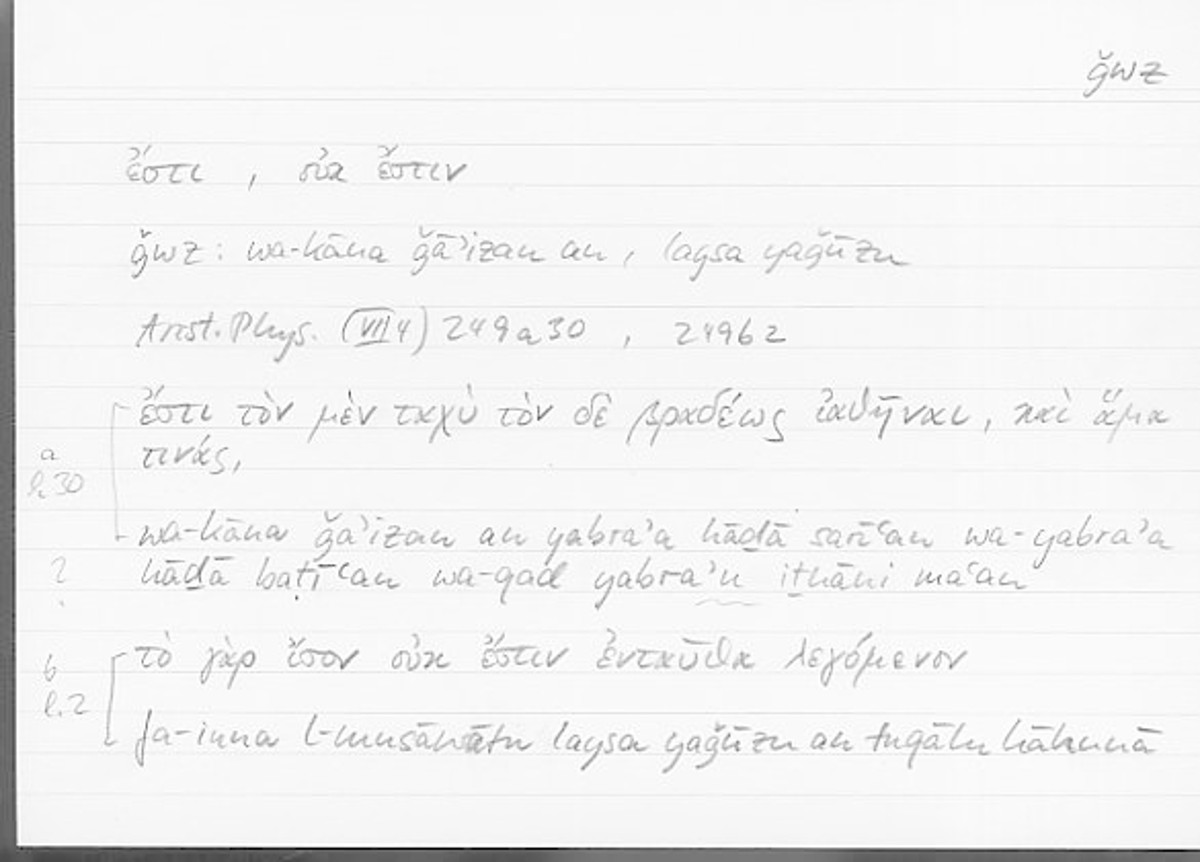 ǧwz
ἔστι , οὐκ ἔστιν
ǧwz : wa-kāna ǧā’izan an , laysa yaǧūzu
Arist. Phys. (VII 4) 249a30 , 249b2
ἔστι τὸν μὲν ταχὺ τὸν δὲ βραδέως ἰαθῆναι, καὶ ἅμα
τινάς,
a
l.30
wa-kāna ǧa’izan an yabra’a hāḏā sarīʿan wa-yabra’a
hāḏā baṭīʿan wa-qad yabra’u iṯnāni maʿan
?
τὸ γὰρ ἴσον οὐκ ἔστιν ἐνταῦθα λεγόμενον
b
l.2
fa-inna l-musāwātu laysa yaǧūzu an tuqālu hāhunā